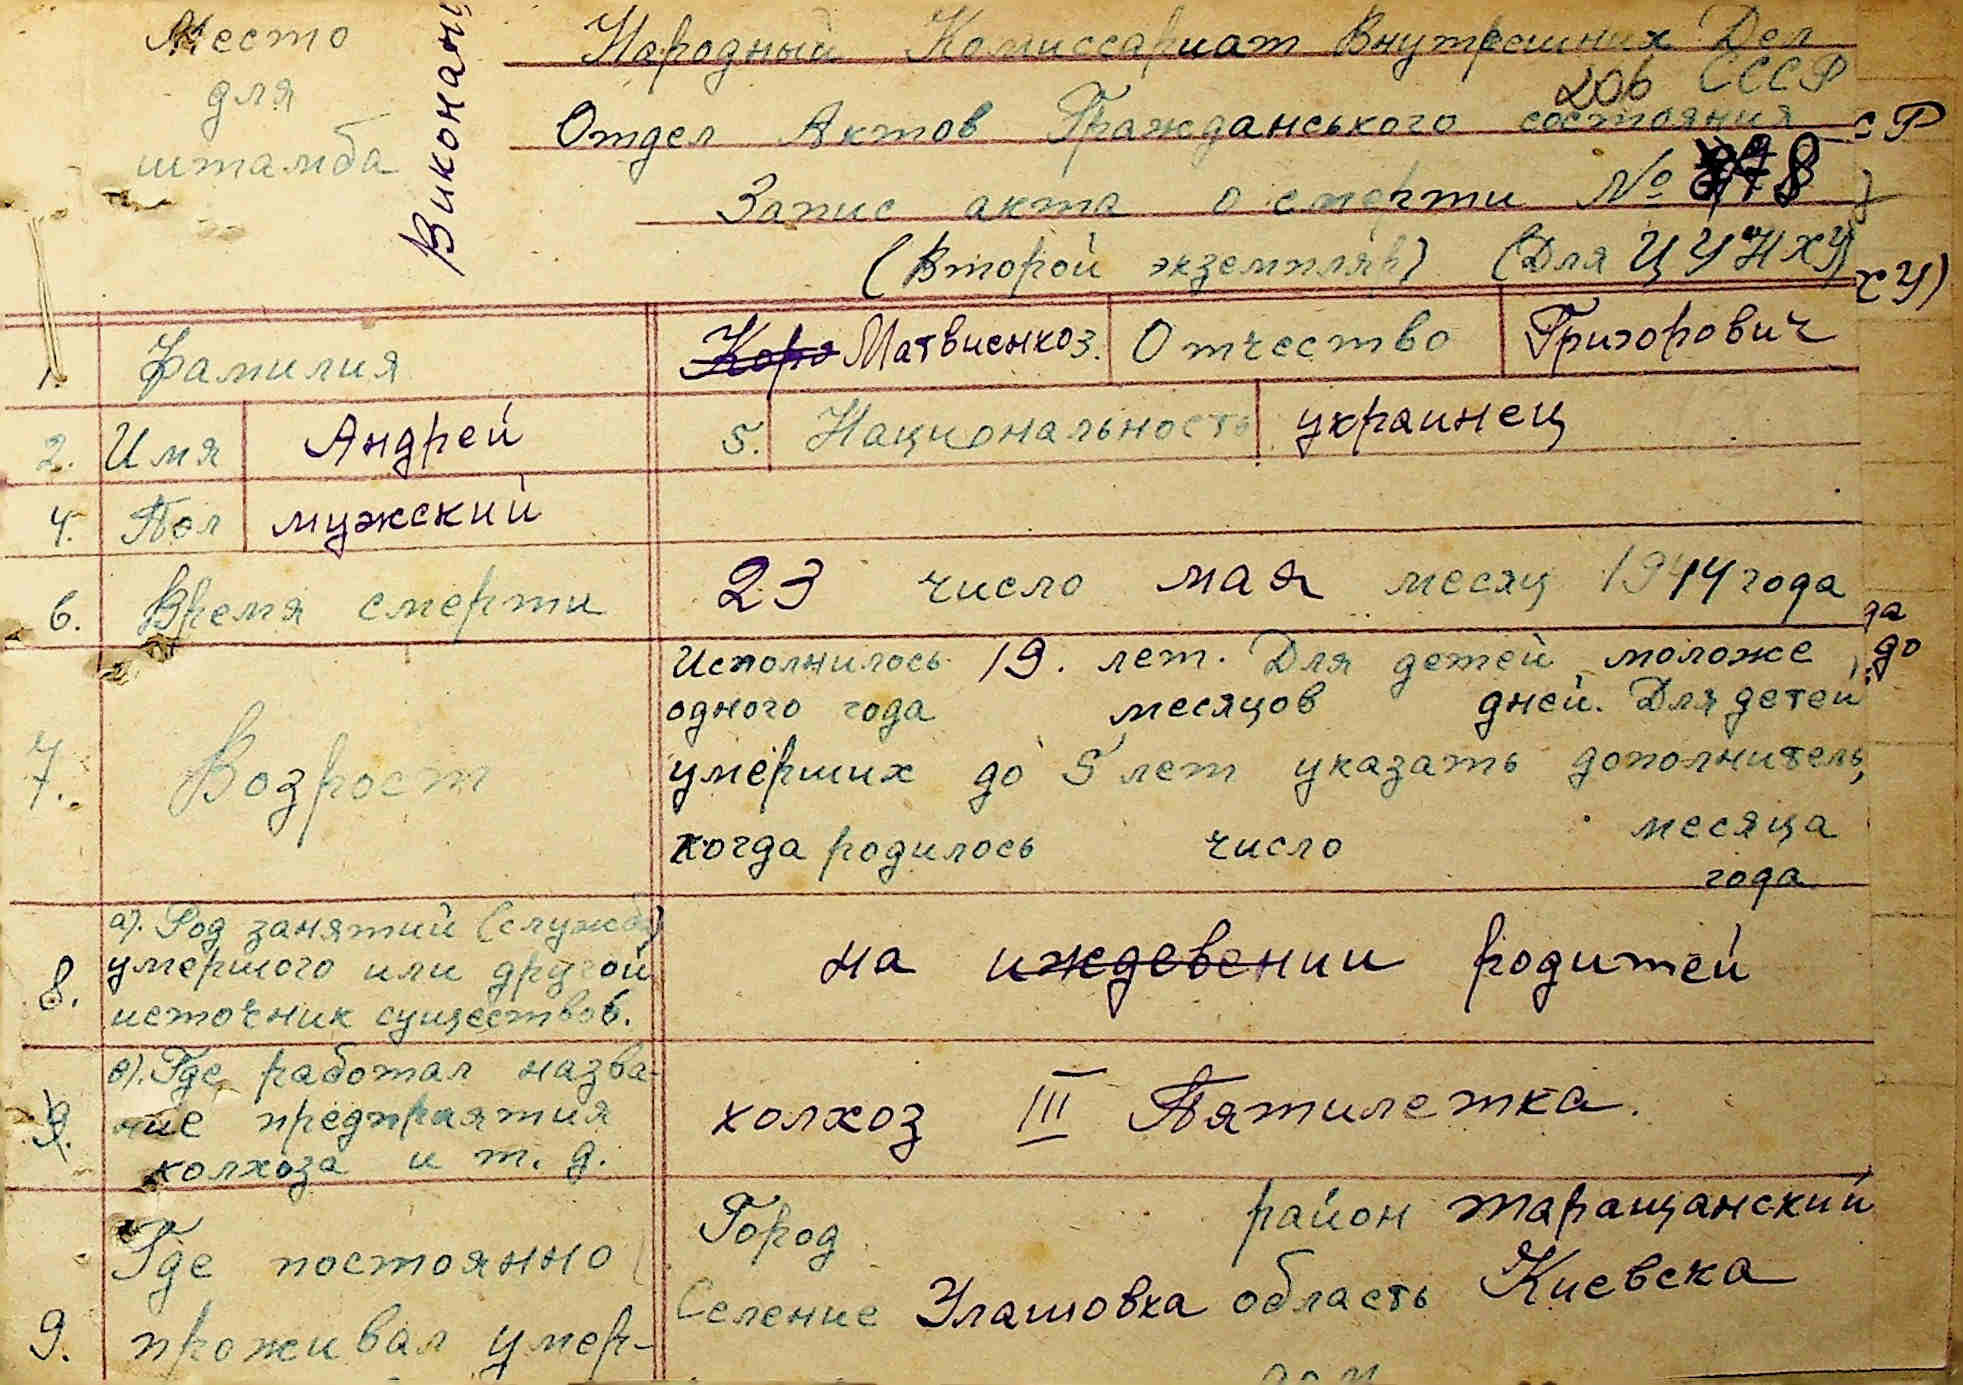 Место
для
штамба
Виконан
Народный Комиссариат Внутрешних Дел
206 СССР
Отдел Актов Гражданського состояния
СР
Запис акта о смерти № 8
(Второй экземпляр) (Для ЦУНХУ)
ХУ)
1. Фамилия Коро Матвиенко 3. Отчество Григорович
2. Имя Андрей 5. Национальность украинец
4. Пол мужский
6. Время смерти 23 число мая месяц 1944 года
да
7. Возрост
Исполнилось 19. лет. Для детей моложе
до
одного года месяцов дней. Для детей
умерших до 5 лет указать дополнитель,
когда родилось число месяца
года
8. а). Род занятий (служба)
умершого или другой
источник существов.
на иждевении родитей
9. в). Где работал назва-
ние предприятия
колхоза и т. д.
колхоз III Пятилетка.
9. Где постоянно
проживал умер-
Город район таращанский
Селение Улашовка область Киевска
дом